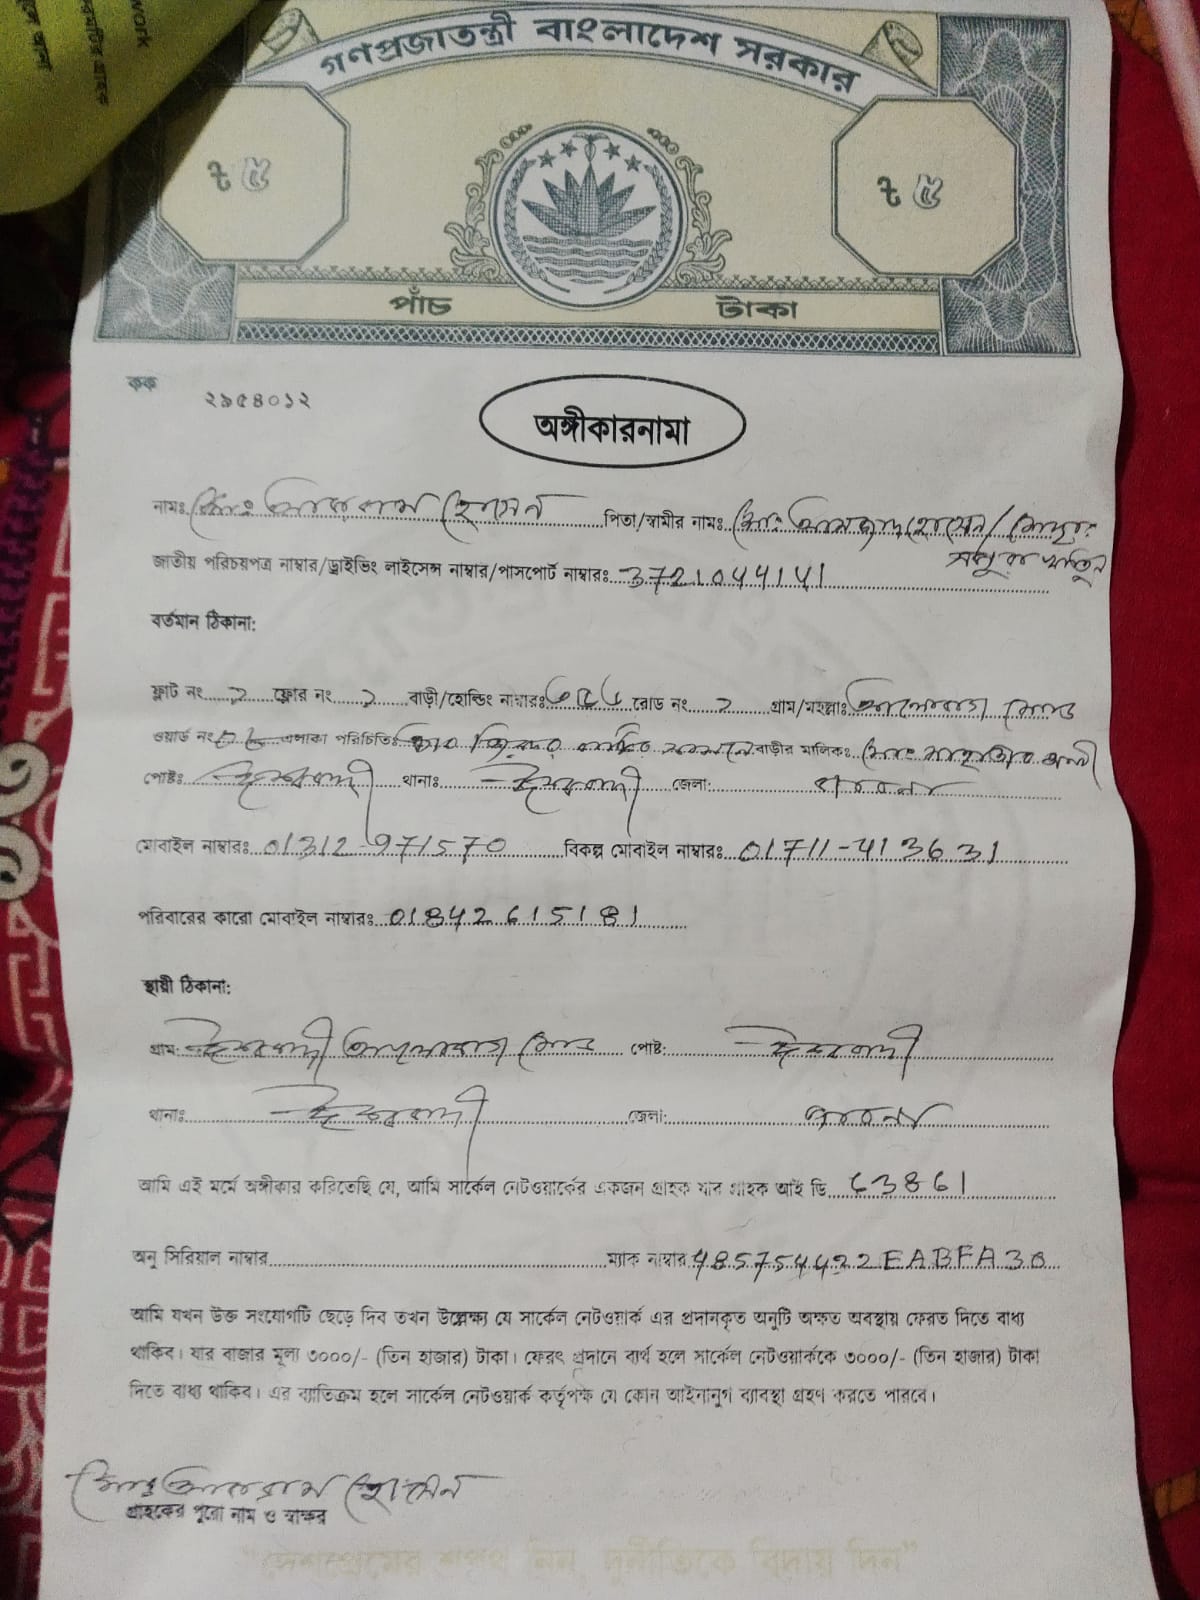 work
গণপ্রজাতন্ত্রী বাংলাদেশ সরকার
৳ ৫ ৳ ৫
পাঁচ টাকা
কক ২৯৫৪০১২
অঙ্গীকারনামা
নামঃ হোসেন পিতা/স্বামীর নামঃ হোসেন/
জাতীয় পরিচয়পত্র নাম্বার/ড্রাইভিং লাইসেন্স নাম্বার/পাসপোর্ট নাম্বারঃ 3721044141
বর্তমান ঠিকানা:
ফ্লাট নং ২ ফ্লোর নং ২ বাড়ী/হোল্ডিং নাম্বারঃ রোড নং ২ গ্রাম/মহল্লাঃ
ওয়ার্ড নং এলাকা পরিচিতিঃ বাড়ীর মালিকঃ
পোষ্টঃ ঈশ্বরদী থানাঃ ঈশ্বরদী জেলা: পাবনা
মোবাইল নাম্বারঃ 01312-971570 বিকল্প মোবাইল নাম্বারঃ 01711-413631
পরিবারের কারো মোবাইল নাম্বারঃ 01842615181
স্থায়ী ঠিকানা:
গ্রাম: ঈশ্বরদী পোষ্ট: ঈশ্বরদী
থানাঃ ঈশ্বরদী জেলা: পাবনা
আমি এই মর্মে অঙ্গীকার করিতেছি যে, আমি সার্কেল নেটওয়ার্কের একজন গ্রাহক যার গ্রাহক আই ডি 63861
অনু সিরিয়াল নাম্বার ম্যাক নাম্বার 485754422EABFA30
আমি যখন উক্ত সংযোগটি ছেড়ে দিব তখন উল্লেক্ষ্য যে সার্কেল নেটওয়ার্ক এর প্রদানকৃত অনুটি অক্ষত অবস্থায় ফেরত দিতে বাধ্য
থাকিব। যার বাজার মূল্য ৩০০০/- (তিন হাজার) টাকা। ফেরৎ প্রদানে ব্যর্থ হলে সার্কেল নেটওয়ার্ককে ৩০০০/- (তিন হাজার) টাকা
দিতে বাধ্য থাকিব। এর ব্যাতিক্রম হলে সার্কেল নেটওয়ার্ক কর্তৃপক্ষ যে কোন আইনানুগ ব্যাবস্থা গ্রহণ করতে পারবে।
হোসেন
গ্রাহকের পুরো নাম ও স্বাক্ষর
"দেশপ্রেমের শপথ নিন, দুর্নীতিকে বিদায় দিন"